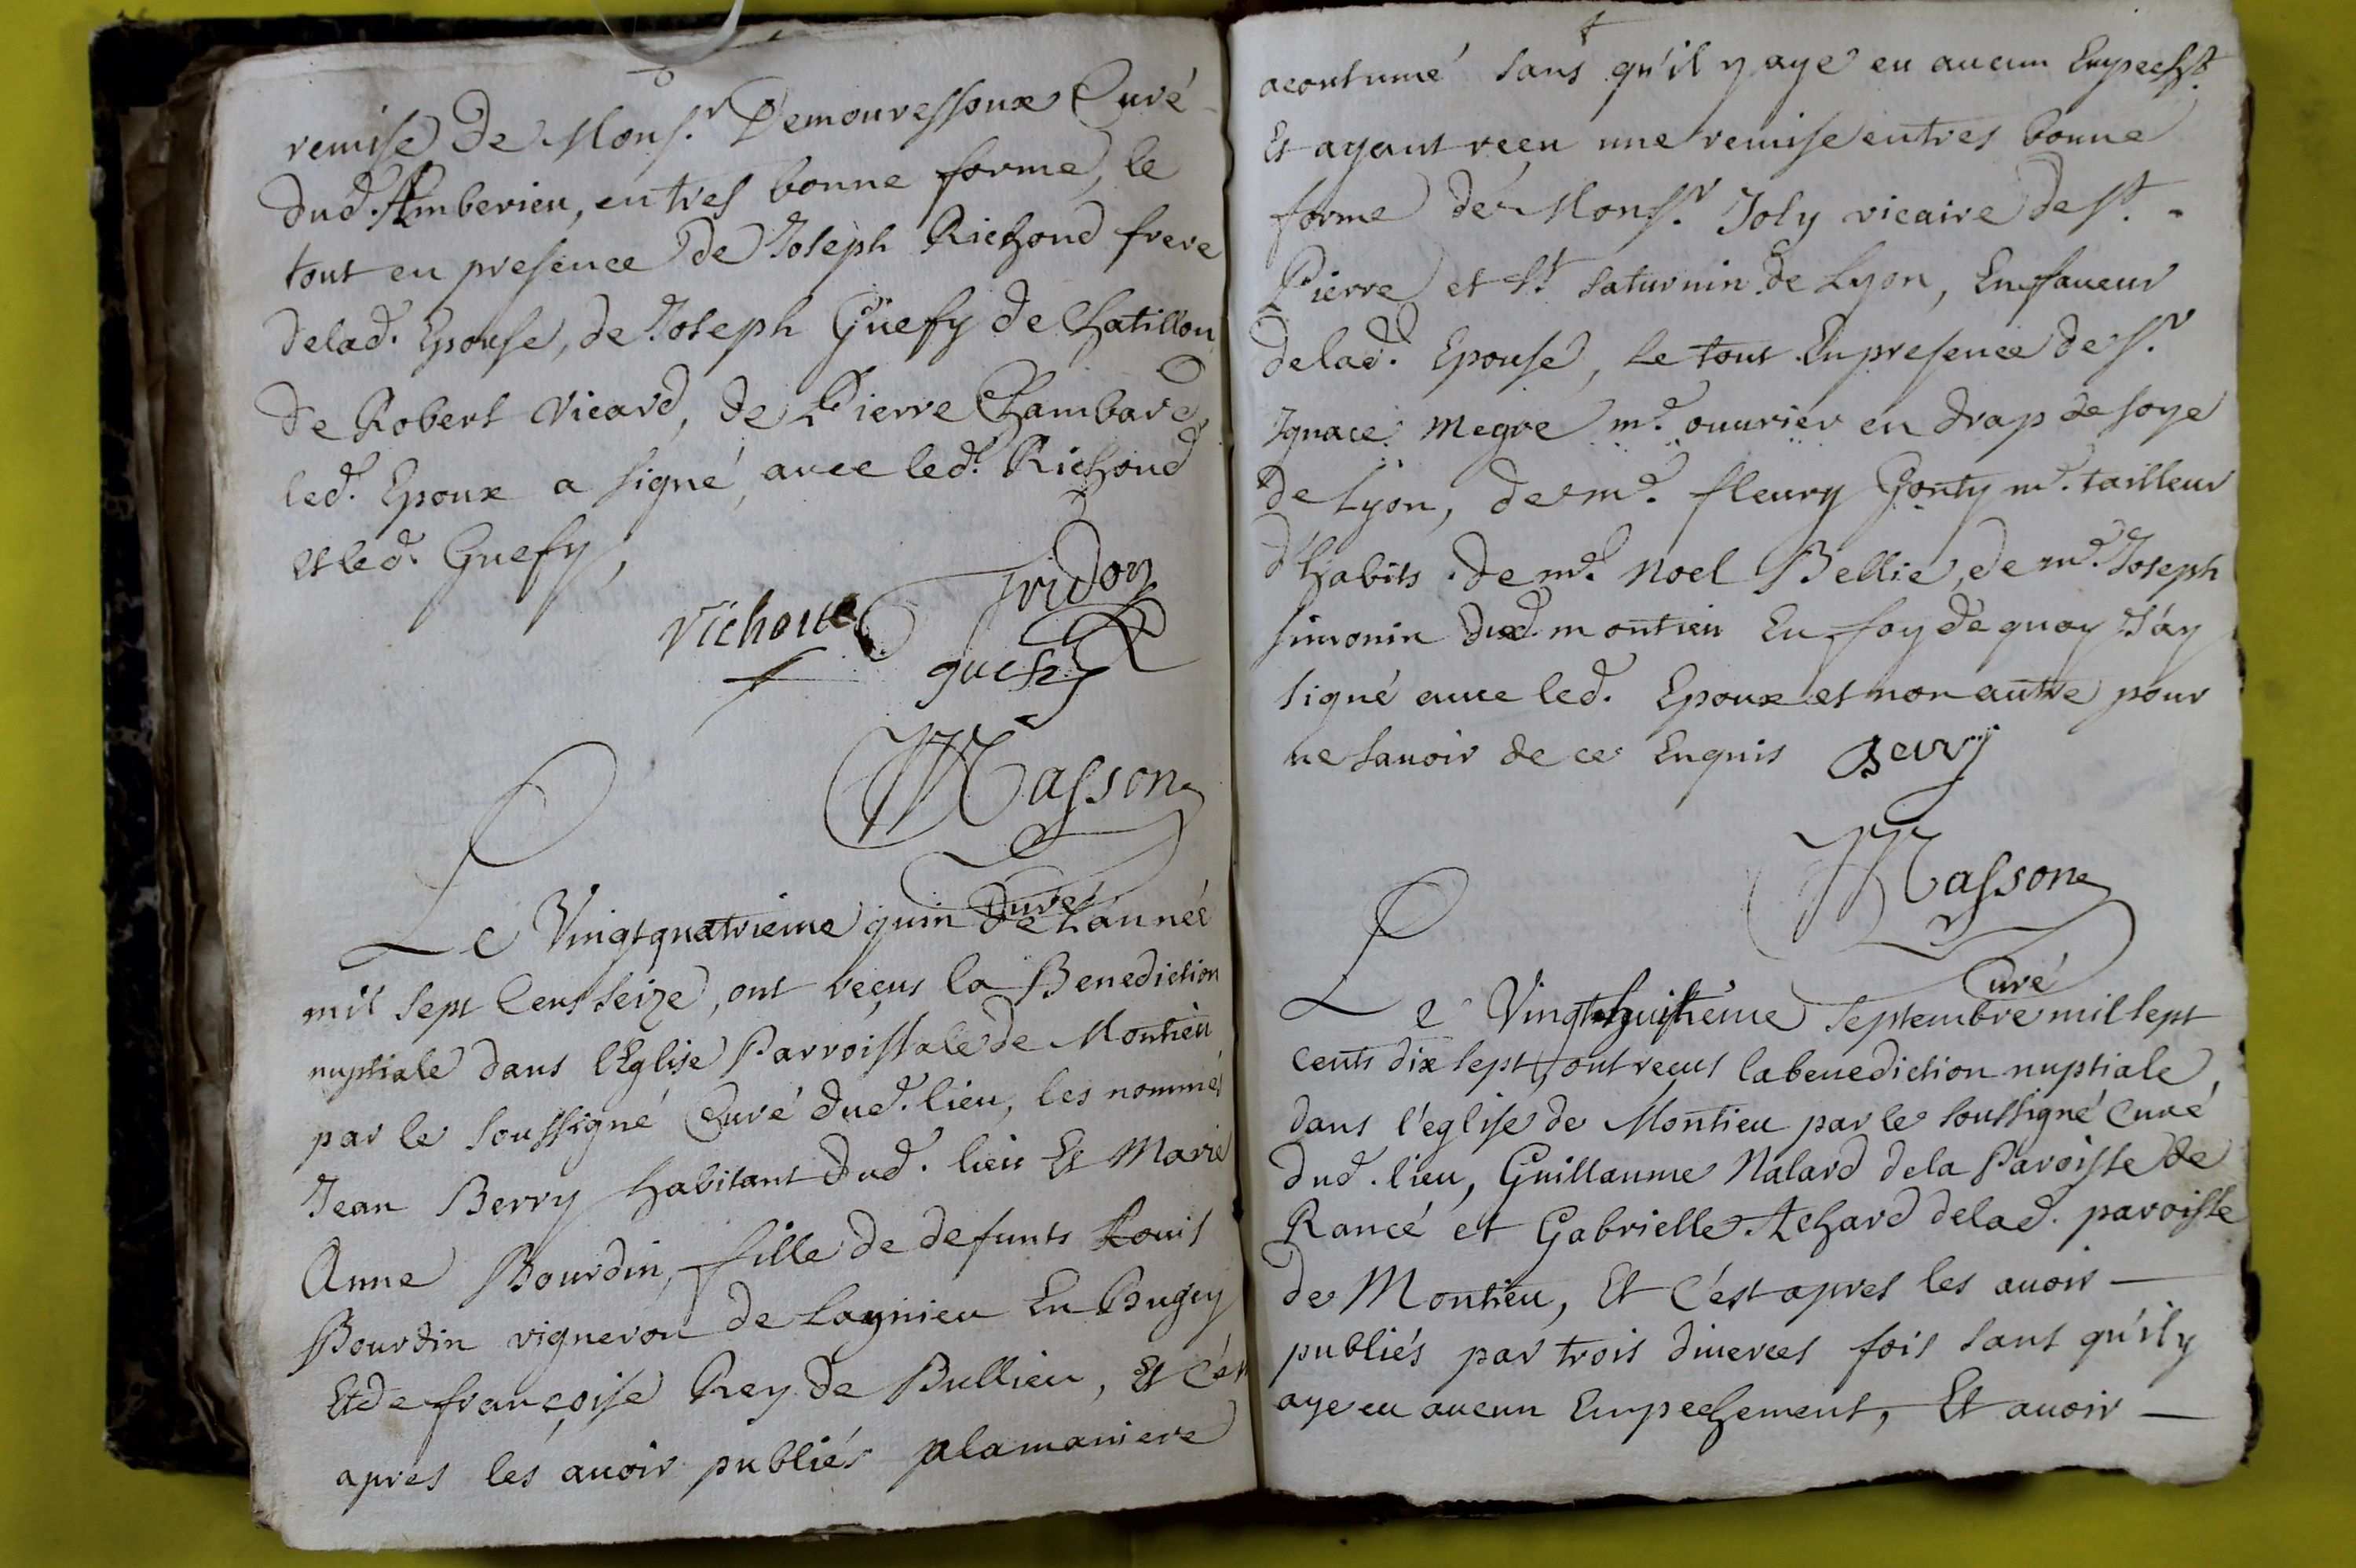 remise de Mons.r Demouressoux Curé
dud. Amberieu, en tres bonne forme, le
tout en presence de Joseph Richond frere
delad. Epouse, de Joseph Guefy de Chatillon
de Robert Vicard, de Pierre Chambard,
led. Epoux a signé, avec led. Richond
et led. Guefy,
Tridon
Richond
guefy
Masson
Curé
Le Vingtquatrieme juin de L'année
mil sept Cens seize, ont reçus la Benediction
nuptiale dans l'Eglise Parroissiale de Montieu
par le soussigné Curé dud. lieu, les nommés
Jean Berry habitant dud. lieu Et Marie
Anne Bourdin, fille de defunts Louis
Bourdin vigneron de Lagnieu En Bugey
Et de françoise Rey de Bullieu, Et C'est
apres les avoir publiés a la maniere
acoutumé sans qu'il y aye eu aucun Empecht.
Et ayant reçu une remise en tres bonne
forme de Mons.r Joly vicaire de st.
Pierre et st. saturnin de Lyon, En faveur
delad. Epouse, Le tout En presence de s.r
Ignace Megre m.e ouvrier en drap de soye
de Lyon, de m.e fleury Gonty m.e tailleur
d'habits. de m.e Noel Bellie, de m.e Joseph
simonin dud. montieu En foy de quoy J'ay
signé avec led. Epoux et non autre pour
ne savoir de ce Enquis Berry
Masson
Curé
Le Vingthuitieme septembre mil sept
cents dix sept, ont reçus la benediction nuptiale,
dans l'eglise de Montieu par le soussigné Curé
dud. lieu, Guillaume Nalard de la Paroisse de
Rancé et Gabrielle Achard delad. paroisse
de Montieu, Et C'est apres les avoir —
publiés par trois diverces fois sans qu'il y
aye eu aucun Empechement, Et avoir —